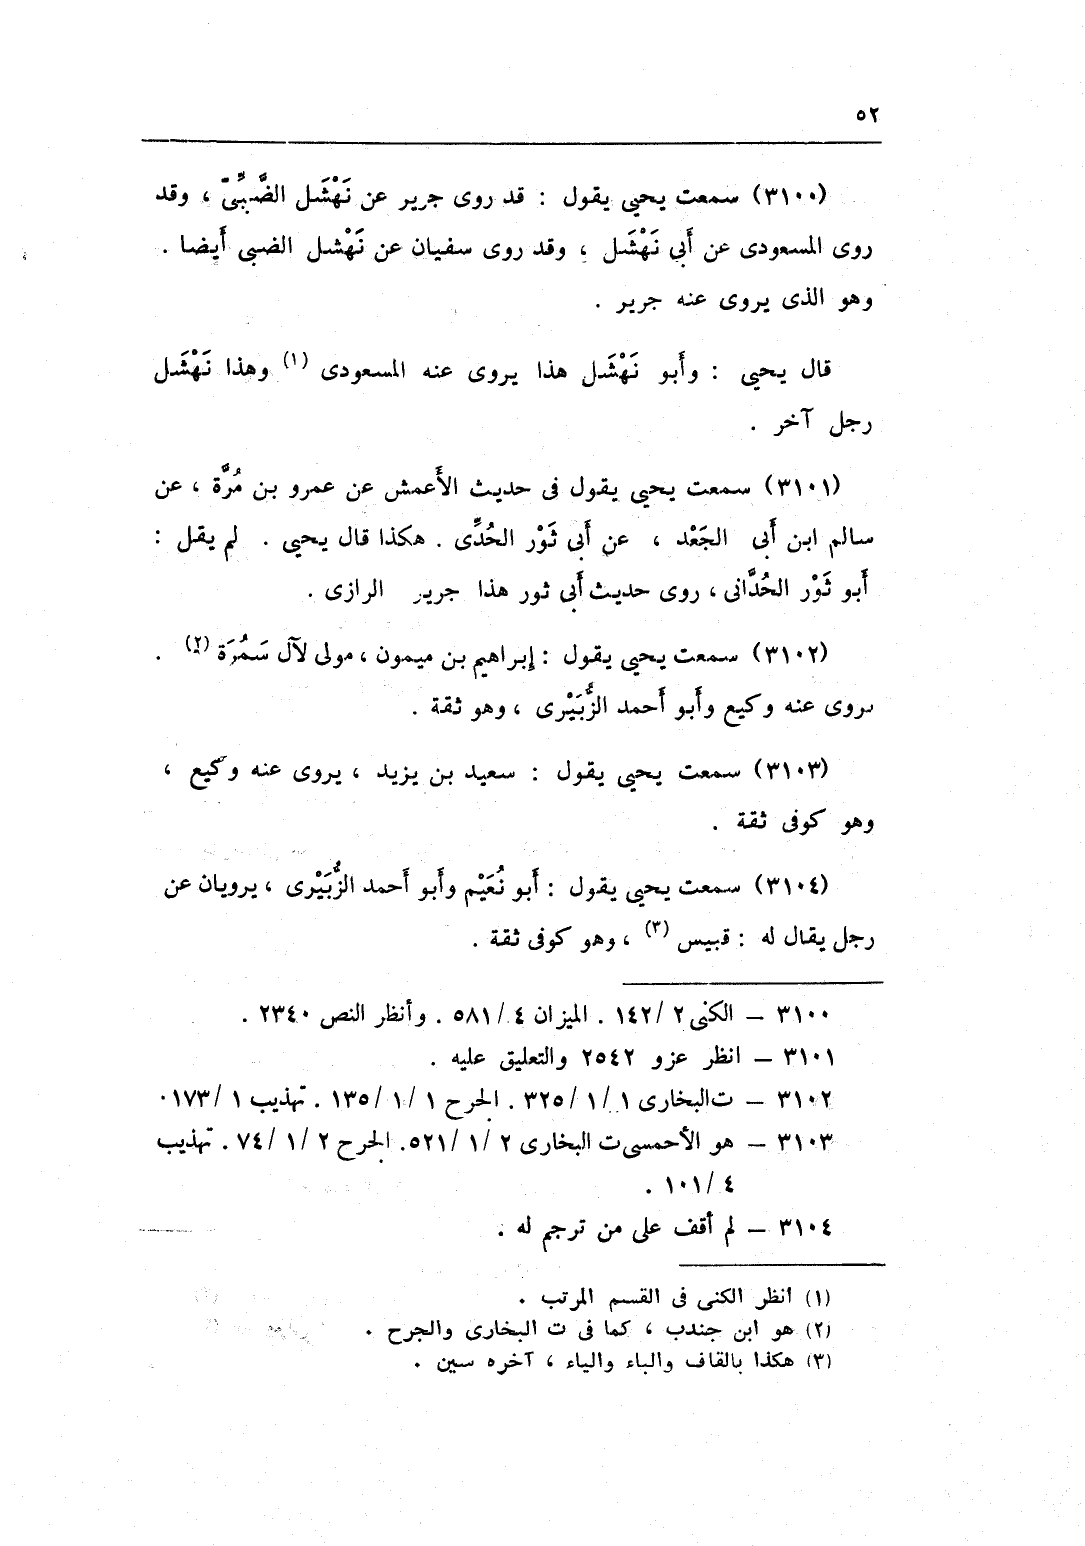 ٥٢
(٣١٠٠) سمعت يحيى يقول : قد روى جرير عن نَهْشَل الضَّبِّىّ ، وقد
روى المسعودى عن أَبى نَهْشَل ، وقد روى سفيان عن نَهْشل الضبى أَيضا .
وهو الذى يروى عنه جرير .
قال يحيى : وأَبو نَهْشَل هذا يروى عنه المسعودى (١) وهذا نَهْشَل
رجل آخر .
(٣١٠١) سمعت يحيى يقول فى حديث الأَعمش عن عمرو بن مُرَّة ، عن
سالم ابن أَبى الجَعْد ، عن أَبى ثَوْر الحُدِّى . هكذا قال يحيى . لم يقل :
أَبو ثَوْر الحُدَّانى ، روى حديث أَبى ثور هذا جرير الرازى .
(٣١٠٢) سمعت يحيى يقول : إبراهيم بن ميمون ، مولى لآل سَمُرَة (٢) .
يروى عنه وكيع وأَبو أَحمد الزُّبَيْرى ، وهو ثقة .
(٣١٠٣) سمعت يحيى يقول : سعيد بن يزيد ، يروى عنه وكيع ،
وهو كوفى ثقة .
(٣١٠٤) سمعت يحيى يقول : أَبو نُعَيْم وأَبو أَحمد الزُّبَيْرى ، يرويان عن
رجل يقال له : قبيس (٣) ، وهو كوفى ثقة .
٣١٠٠ – الكنى ٢ /١٤٢ . الميزان ٤ /٥٨١ . وأنظر النص ٢٣٤٠ .
٣١٠١ – انظر عزو ٢٥٤٢ والتعليق عليه .
٣١٠٢ – ت البخارى ١ /١ /٣٢٥ . الجرح ١ /١ /١٣٥ . تهذيب ١ /١٧٣٠
٣١٠٣ – هو الأحمسى ت البخارى ٢ /١ /٥٢١. الجرح ٢ /١ /٧٤ . تهذيب
٤ /١٠١ .
٣١٠٤ – لم أقف على من ترجم له .
(١) انظر الكنى فى القسم المرتب .
(٢) هو ابن جندب ، كما فى ت البخارى والجرح .
(٣) هكذا بالقاف والباء والياء ، آخره سين .